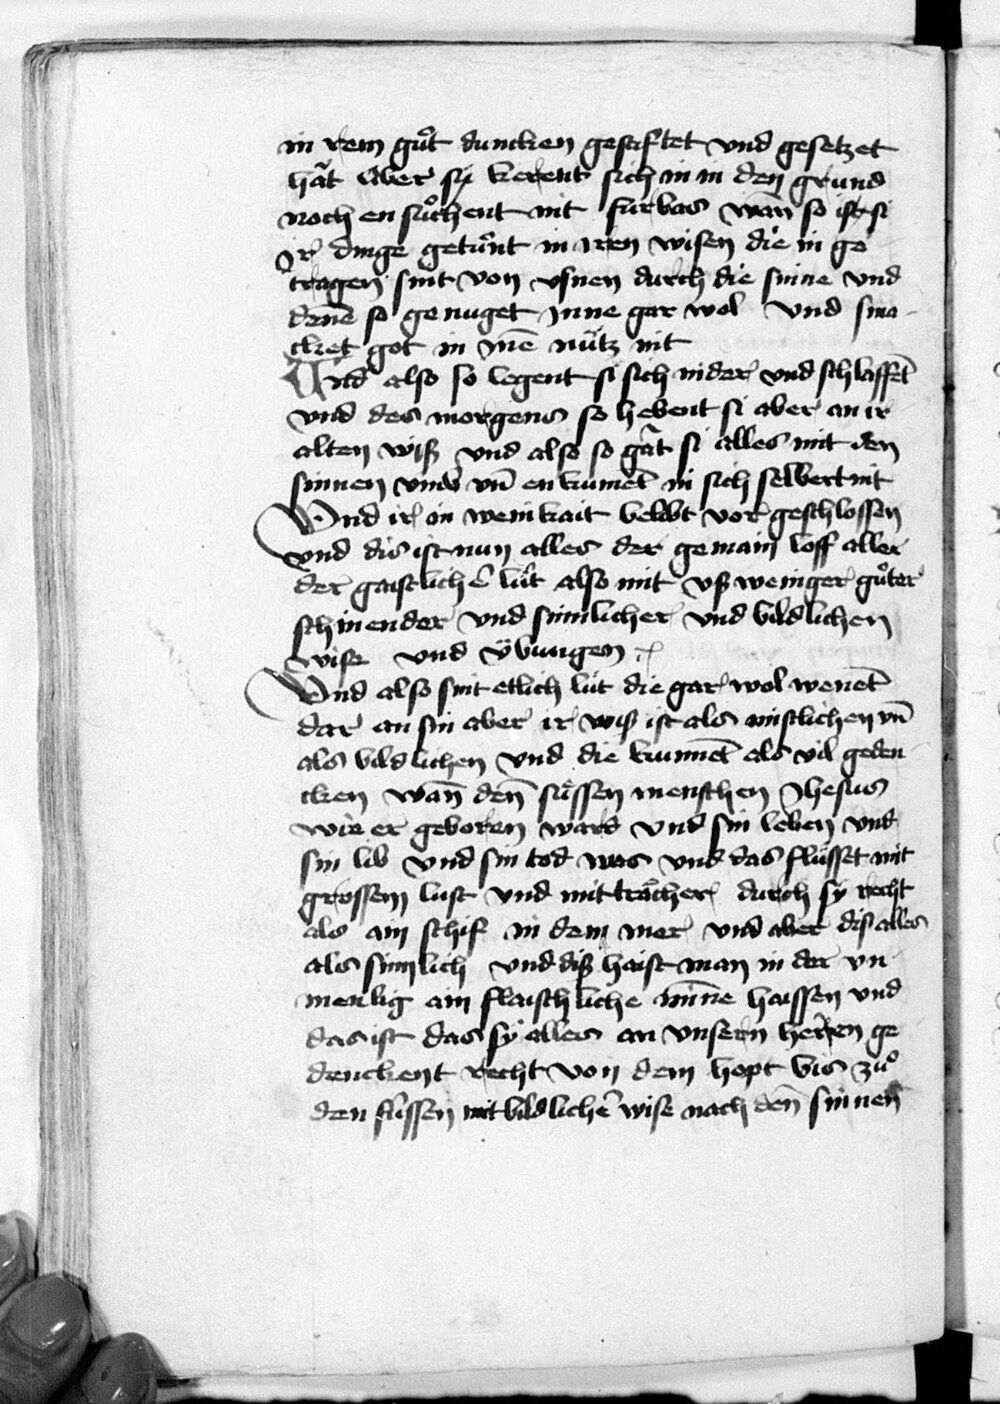 in irem guͦt duncken gestiftet vnd gesetzet
hat Aber sy kerent sich in in den grund
noch en suͦchent nit fúrbas wan̄ so ist si
Jr dinge getuͦnt in irren wisen die in ge
tragen sint von vsnen durch die sinne vnd
denē so genuget Jnne gar wol vnd sma-
cket got in inē nútz nit
Vnd also so legent si sich nider vnd schlaffēt
vnd des morgens so hebent si aber an ir
alten wiß vnd also so gat si alles mit den
sinnen vmb vn̄ en kumēt in sich selbert nit
Vnd ir in wenikait belibt vor geschlossen
vnd dis ist nun alles der gemain loff aller
der gaistlichē lút also mit vßweniger guͦter
schinender vnd sinnlicher vnd bildlichen
wise vnd v̈bungen
Vnd also sint etlich lút die gar wol wenēt
dar an sin aber ir wiß ist als mistlichen vn̄
als bildlichen vnd die kunnēt als vil geden
cken wan̄ den̄ suͤssen menschen Jhesus
wie er geboren ward vnd sin leben vnd
sin lib vnd sin tod was vnd das flússet mit
grossem lust vnd mit trächer durch sy recht
als ain schif in dem mer vnd aber dis alles
als sinnlich vnd diß haist man in der vn
menlig ain flaischliche minne haissen vnd
das ist das sy alles an vnsern herren ge
denckent recht von dem hopt bis zuͦ
den fuͤssen mit bildlichē wise nach den̄ sinnen